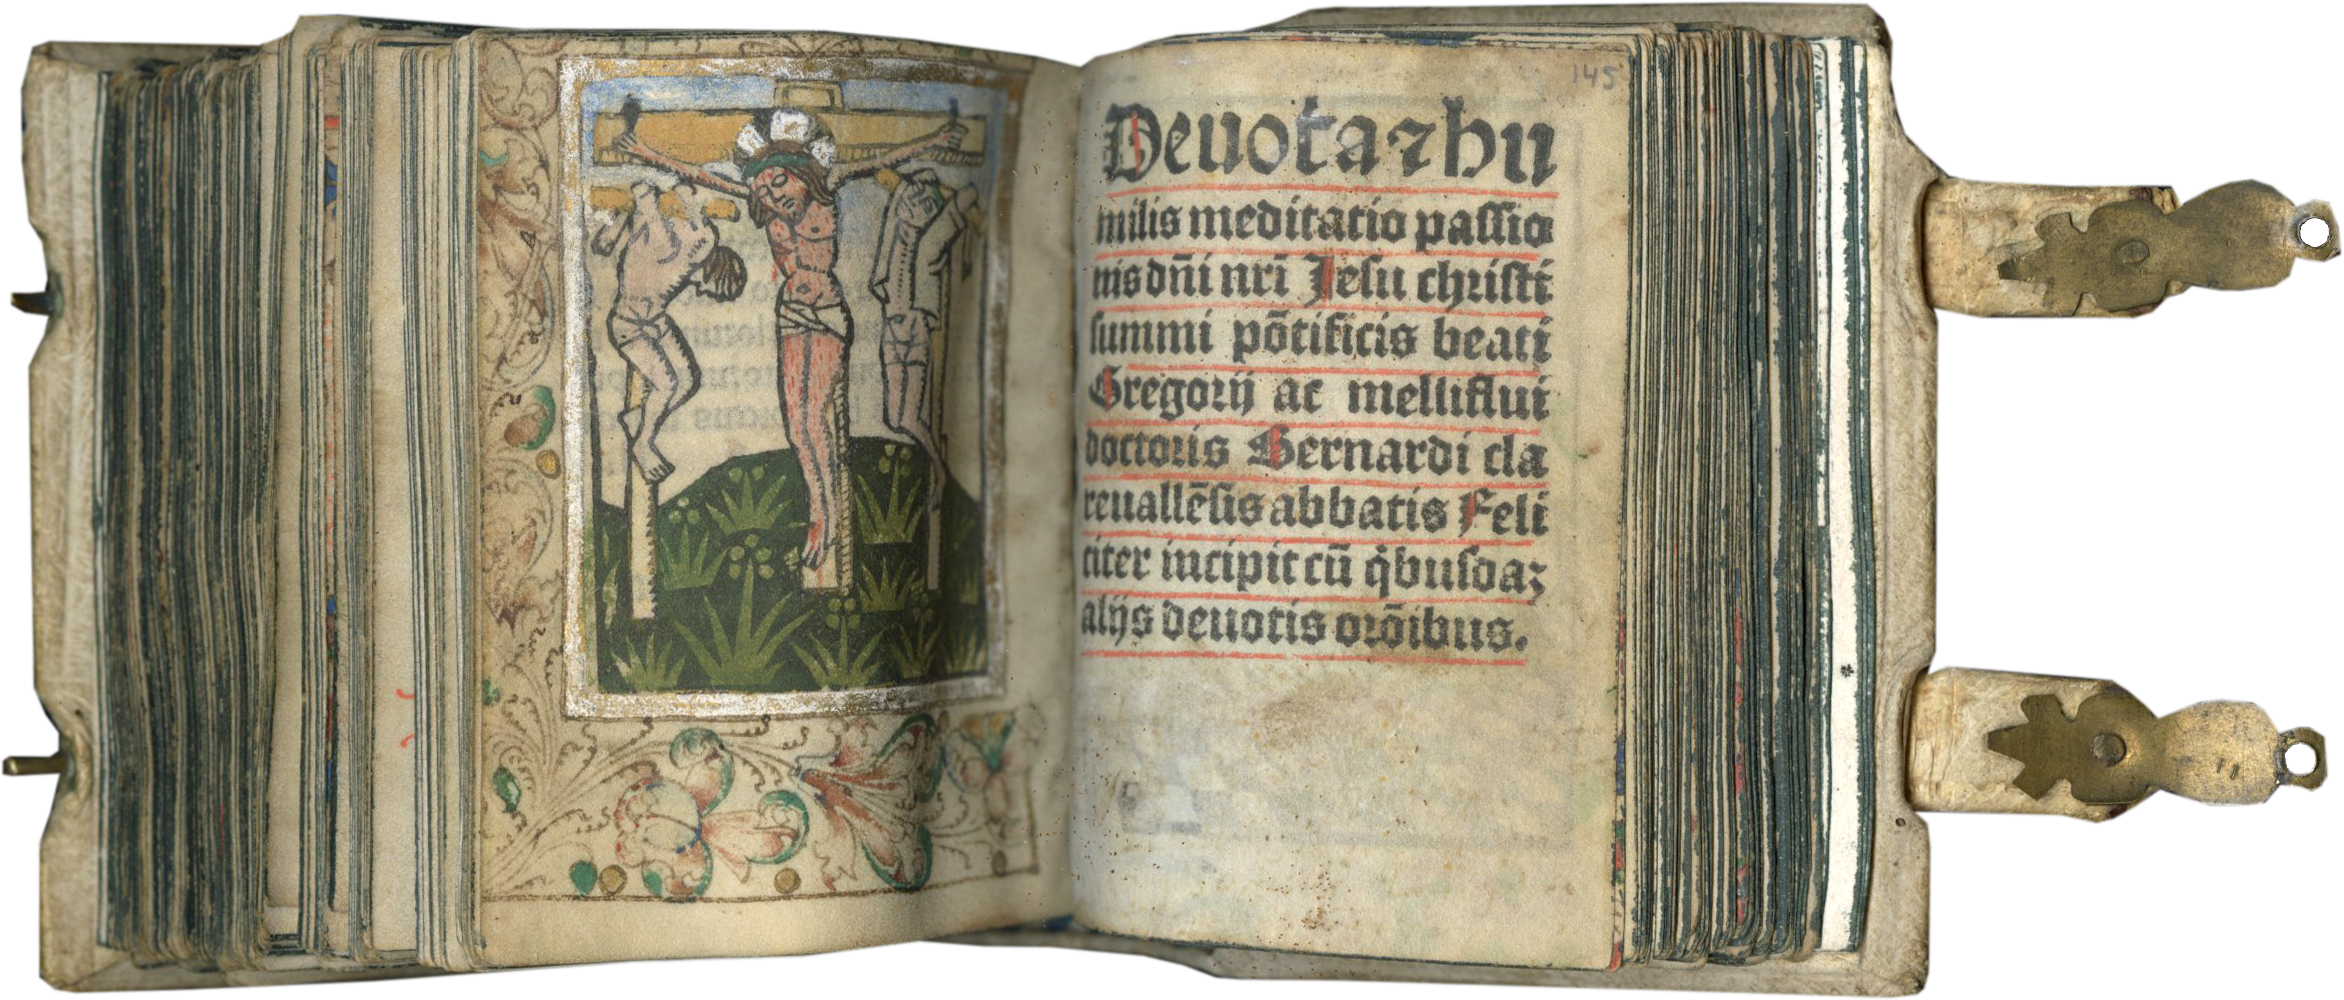 145
Deuota ⁊ hu
milis meditatio passio
nis dñi nri Jesu christi
summi põtificis beati
Gregorij ac melliflui
doctoris Bernardi cla
reuallẽsis abbatis Feli
citer incipit cũ q̇busdaꝫ
alijs deuotis orõibus.